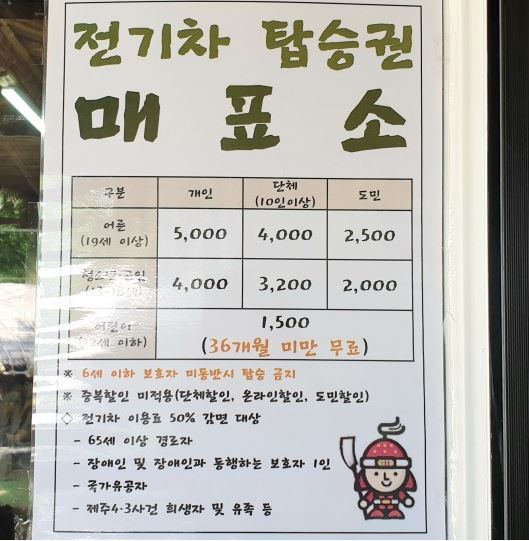 전기차 탑승권
매표소
구분 개인 단체 (10인이상) 도민
어른 (19세 이상) 5,000 4,000 2,500
청소년·군인 4,000 3,200 2,000
어린이 이하) 1,500
(36개월 미만 무료)
※ 6세 이하 보호자 미동반시 탑승 금지
※ 중복할인 미적용(단체할인, 온라인할인, 도민할인)
◇ 전기차 이용료 50% 감면 대상
- 65세 이상 경로자
- 장애인 및 장애인과 동행하는 보호자 1인
- 국가유공자
- 제주4·3사건 희생자 및 유족 등